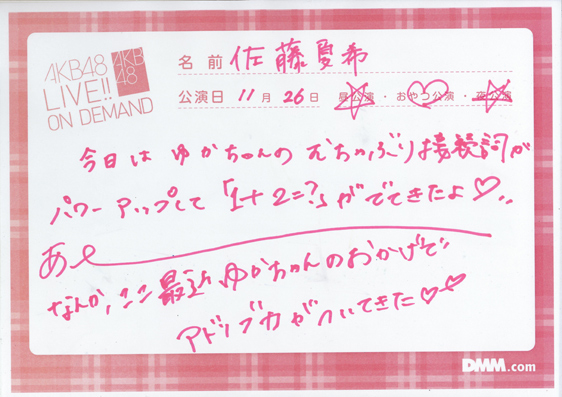 AKB48
LIVE!!
ON DEMAND
AKB
48
名前 佐藤夏希
公演日 11月26日 昼公演・おやつ公演・夜公演
今日は ゆかちゃんの むちゃぶり接続詞が
パワーアップして「1+2=?」がでてきたよ♡
あと
なんか、ここ最近ゆかちゃんのおかげで
アドリブ力がついてきた♡♡
DMM.com